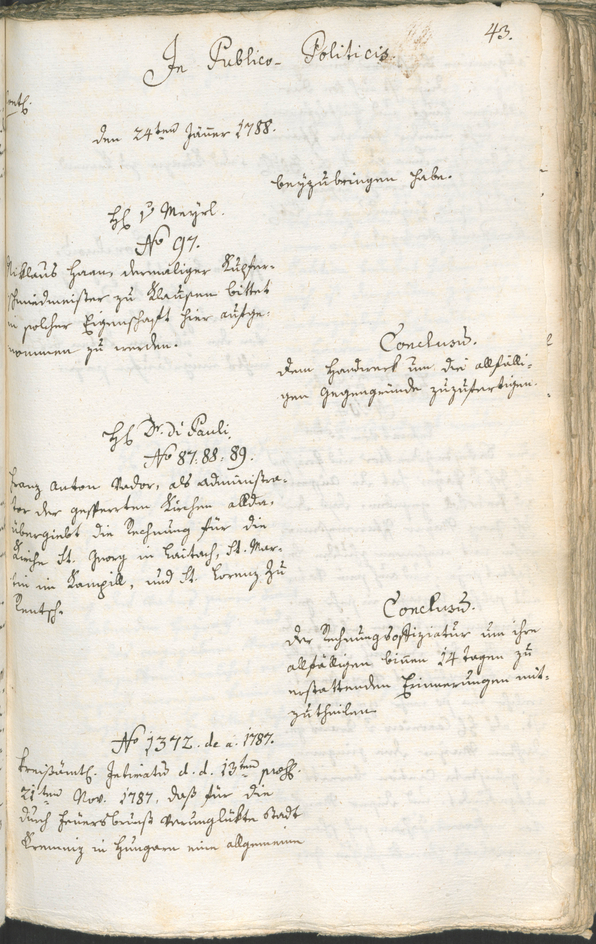 43.
In Publico-Politicis.
den 24ten Jäner 1788.
beyzubringen habe.
H. v. Meyrl.
No 97.
Niklaus Haan, dermaliger Kupfer-
schmiedmeister zu Klausen bittet
in solcher Eigenschaft hier aufge-
nommen zu werden.
Conclusũ.
dem Handwerk um die allfälli-
gen Gegengründe zuzufertigen.
H. Dr. di Pauli.
No 87. 88. 89.
Franz Anton Vador, als Administra-
tor der gesperrten Kirchen allda,
übergiebt die Rechnung für die
Kirche St. Georg in Laitach, St. Mar-
tin in Kampill, und St. Lorenz zu
Rentsch.
Conclusũ.
der Rechnungsoffiziatur um ihre
allfälligen binen 14 tagen zu
erstattenden Erinnerungen mit-
zutheilen.
No 1372. de a. 1787.
Kreisämtl. Intimatũ d. d. 13ten
21ten Nov. 1787, daß für die
durch Feuersbrunst verunglükte Stadt
Kremniz in Hungarn eine allgemeine